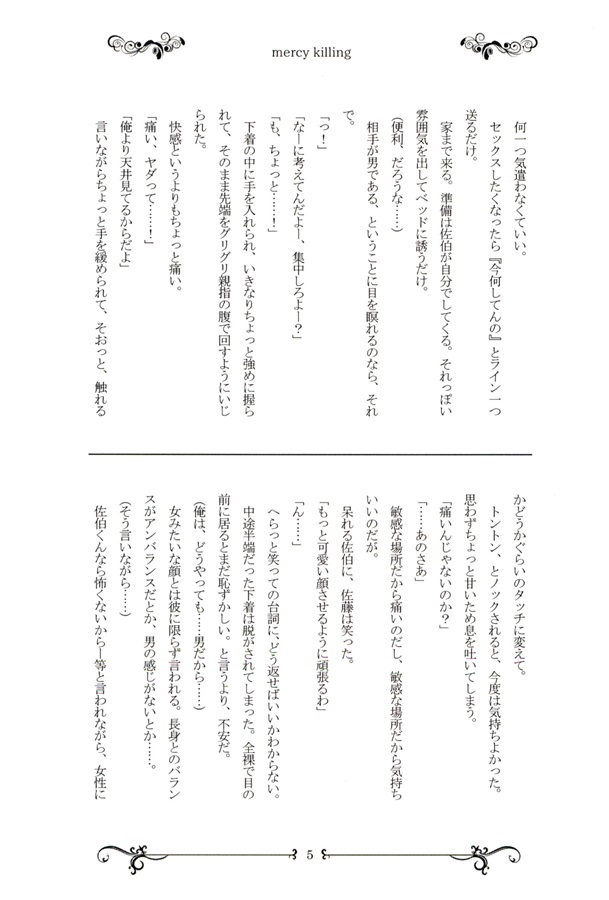 mercy killing
何一つ気遣わなくていい。
セックスしたくなったら『今何してんの』とライン一つ
送るだけ。
家まで来る。準備は佐伯が自分でしてくる。それっぽい
雰囲気を出してベッドに誘うだけ。
(便利、だろうな……)
相手が男である、ということに目を瞑れるのなら、それ
で。
「っ！」
「なーに考えてんだよー、集中しろよー？」
「も、ちょっと……！」
下着の中に手を入れられ、いきなりちょっと強めに握ら
れて、そのまま先端をグリグリ親指の腹で回すようにいじ
られた。
快感というよりもちょっと痛い。
「痛い、ヤダって……！」
「俺より天井見てるからだよ」
言いながらちょっと手を緩められて、そおっと、触れる
かどうかぐらいのタッチに変えて。
トントン、とノックされると、今度は気持ちよかった。
思わずちょっと甘いため息を吐いてしまう。
「痛いんじゃないのか？」
「……あのさあ」
敏感な場所だから痛いのだし、敏感な場所だから気持ち
いいのだが。
呆れる佐伯に、佐藤は笑った。
「もっと可愛い顔させるように頑張るわ」
「ん……」
へらっと笑っての台詞に、どう返せばいいかわからない。
中途半端だった下着は脱がされてしまった。全裸で目の
前に居るとまだ恥ずかしい。と言うより、不安だ。
(俺は、どうやっても……男だから……)
女みたいな顔とは彼に限らず言われる。長身とのバラン
スがアンバランスだとか、男の感じがないとか……。
(そう言いながら……)
佐伯くんなら怖くないからー等と言われながら、女性に
5